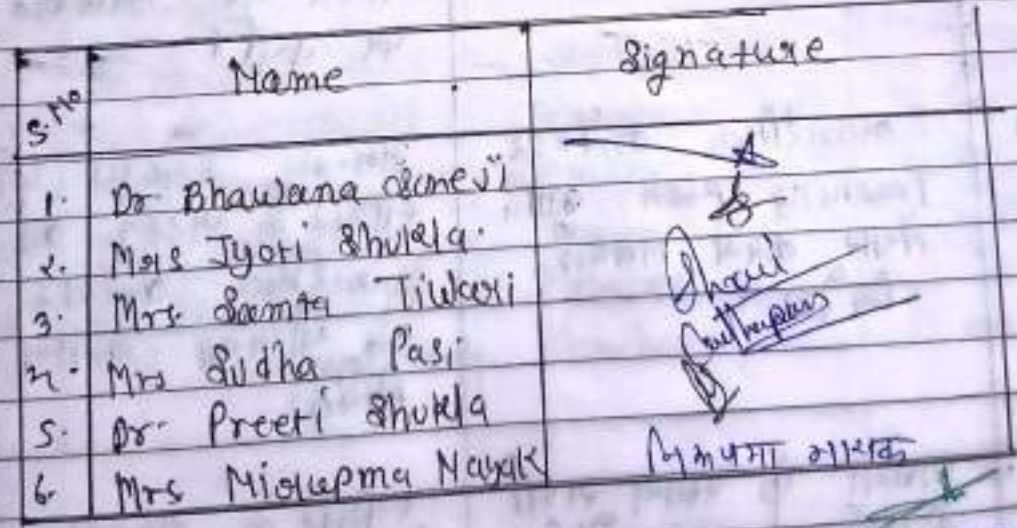 S.No Name Signature
1. Dr Bhawana Saneji
2. Mrs Jyoti Shukla.
3. Mrs. Samta Tiwari
4. Mrs Sudha Pasi
5. Dr. Preeti Shukla
6. Mrs Nirupma Nayak निरुपमा नायक